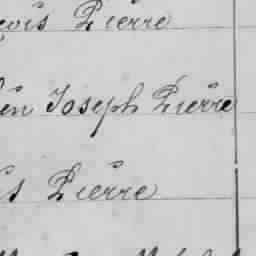 çois Pierre
en Joseph Pierre
s Pierre